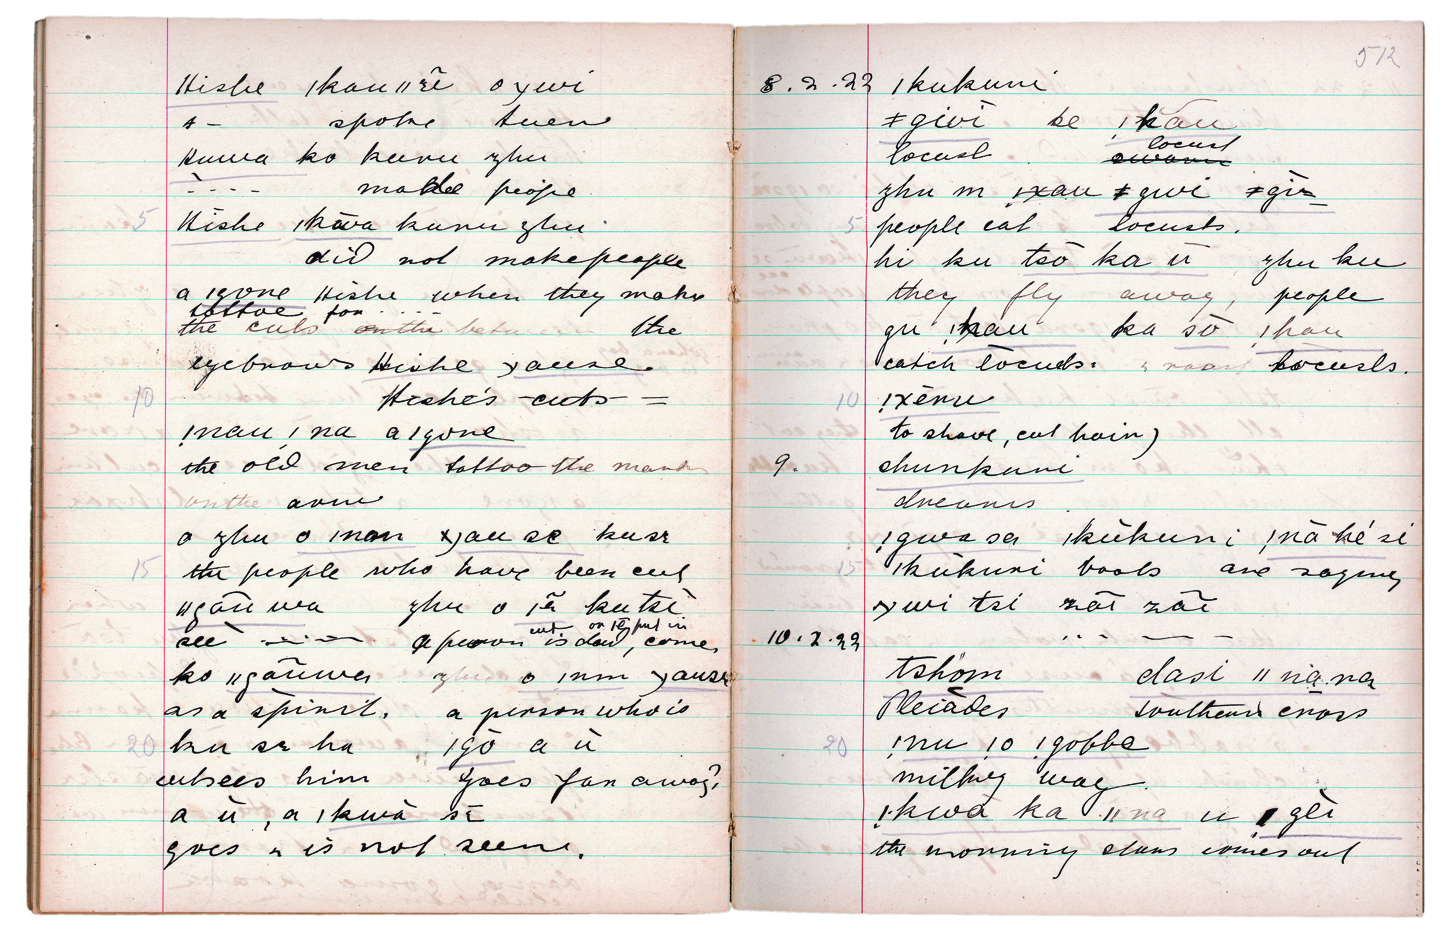 Hishe ǀkau ǁžĩ o χwi
" – spoke then
Huwa ko kuru zhu
" - - - made people
Hishe ǀkāva kuru zhu.
did not make people
a ǀgone Hishe when they make
tattoo for . . . .
the cuts on the the
eyebrows Hishe χause.
Hishe's cuts =
ǃnau ǃna a ǀgone
the old men tattoo the
on the arm
a zhu o ǀnan χau se kuse
the people who have been cut
ǁgāu wa zhu o ǀẽ ku tsi
see — · — a person is dead, comes
cut or put in
ko ǁgāuwa zhu o ǀnm χause
as a spirit. a person who is
ku se ha ǀgō a ū
who sees him goes far away?
a ū, a ǀkwā sē
goes is not seen.
512
8.2.22 ǀkukuni
ǂgiwi se ǃkau
locust locust
swarm
zhu m ǃxau ǂgwi ǂgi
5 people eat locusts.
hi ku tsō ka ū zhu ku
they fly away, people
gu ǃkau ka sō ǃkau
catch locusts. roast locusts.
10 ǃxēru
to shave, cut hair)
9. shunkuni
dreams
ǃgwasa ǀkūkuni ǃnā hé si
15 ǀkūkuni boots are saying
χwi tsi zāi zāi
10.2.22
tshom dasi ǁna na
Pleiades southern cross
20 ǃnu ǀo ǀgobbe
milky way
ǃkwā ka ǁna u ǀgēi
the morning stars comes out
5
10
15
20